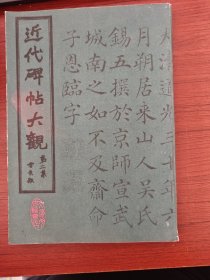 近代碑帖大觀
第二集
大清道光三十年六
月朔居來山人吳氏
錫五撰於京師宣武
城南之如不及齋命
子恩臨字